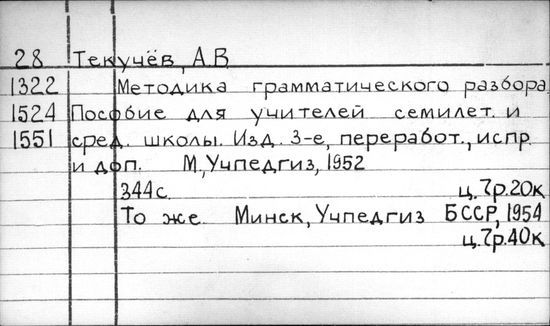 28 Текучёв, А.В
1322 Методика грамматического разбора.
1524 Пособие для учителей семилет. и
1551 сред. школы. Изд. 3-е, переработ., испр.
и доп. М., Учпедгиз, 1952
344с. ц. 7р.20к
То же Минск, Учпедгиз БССР, 1954
ц. 7р.40к